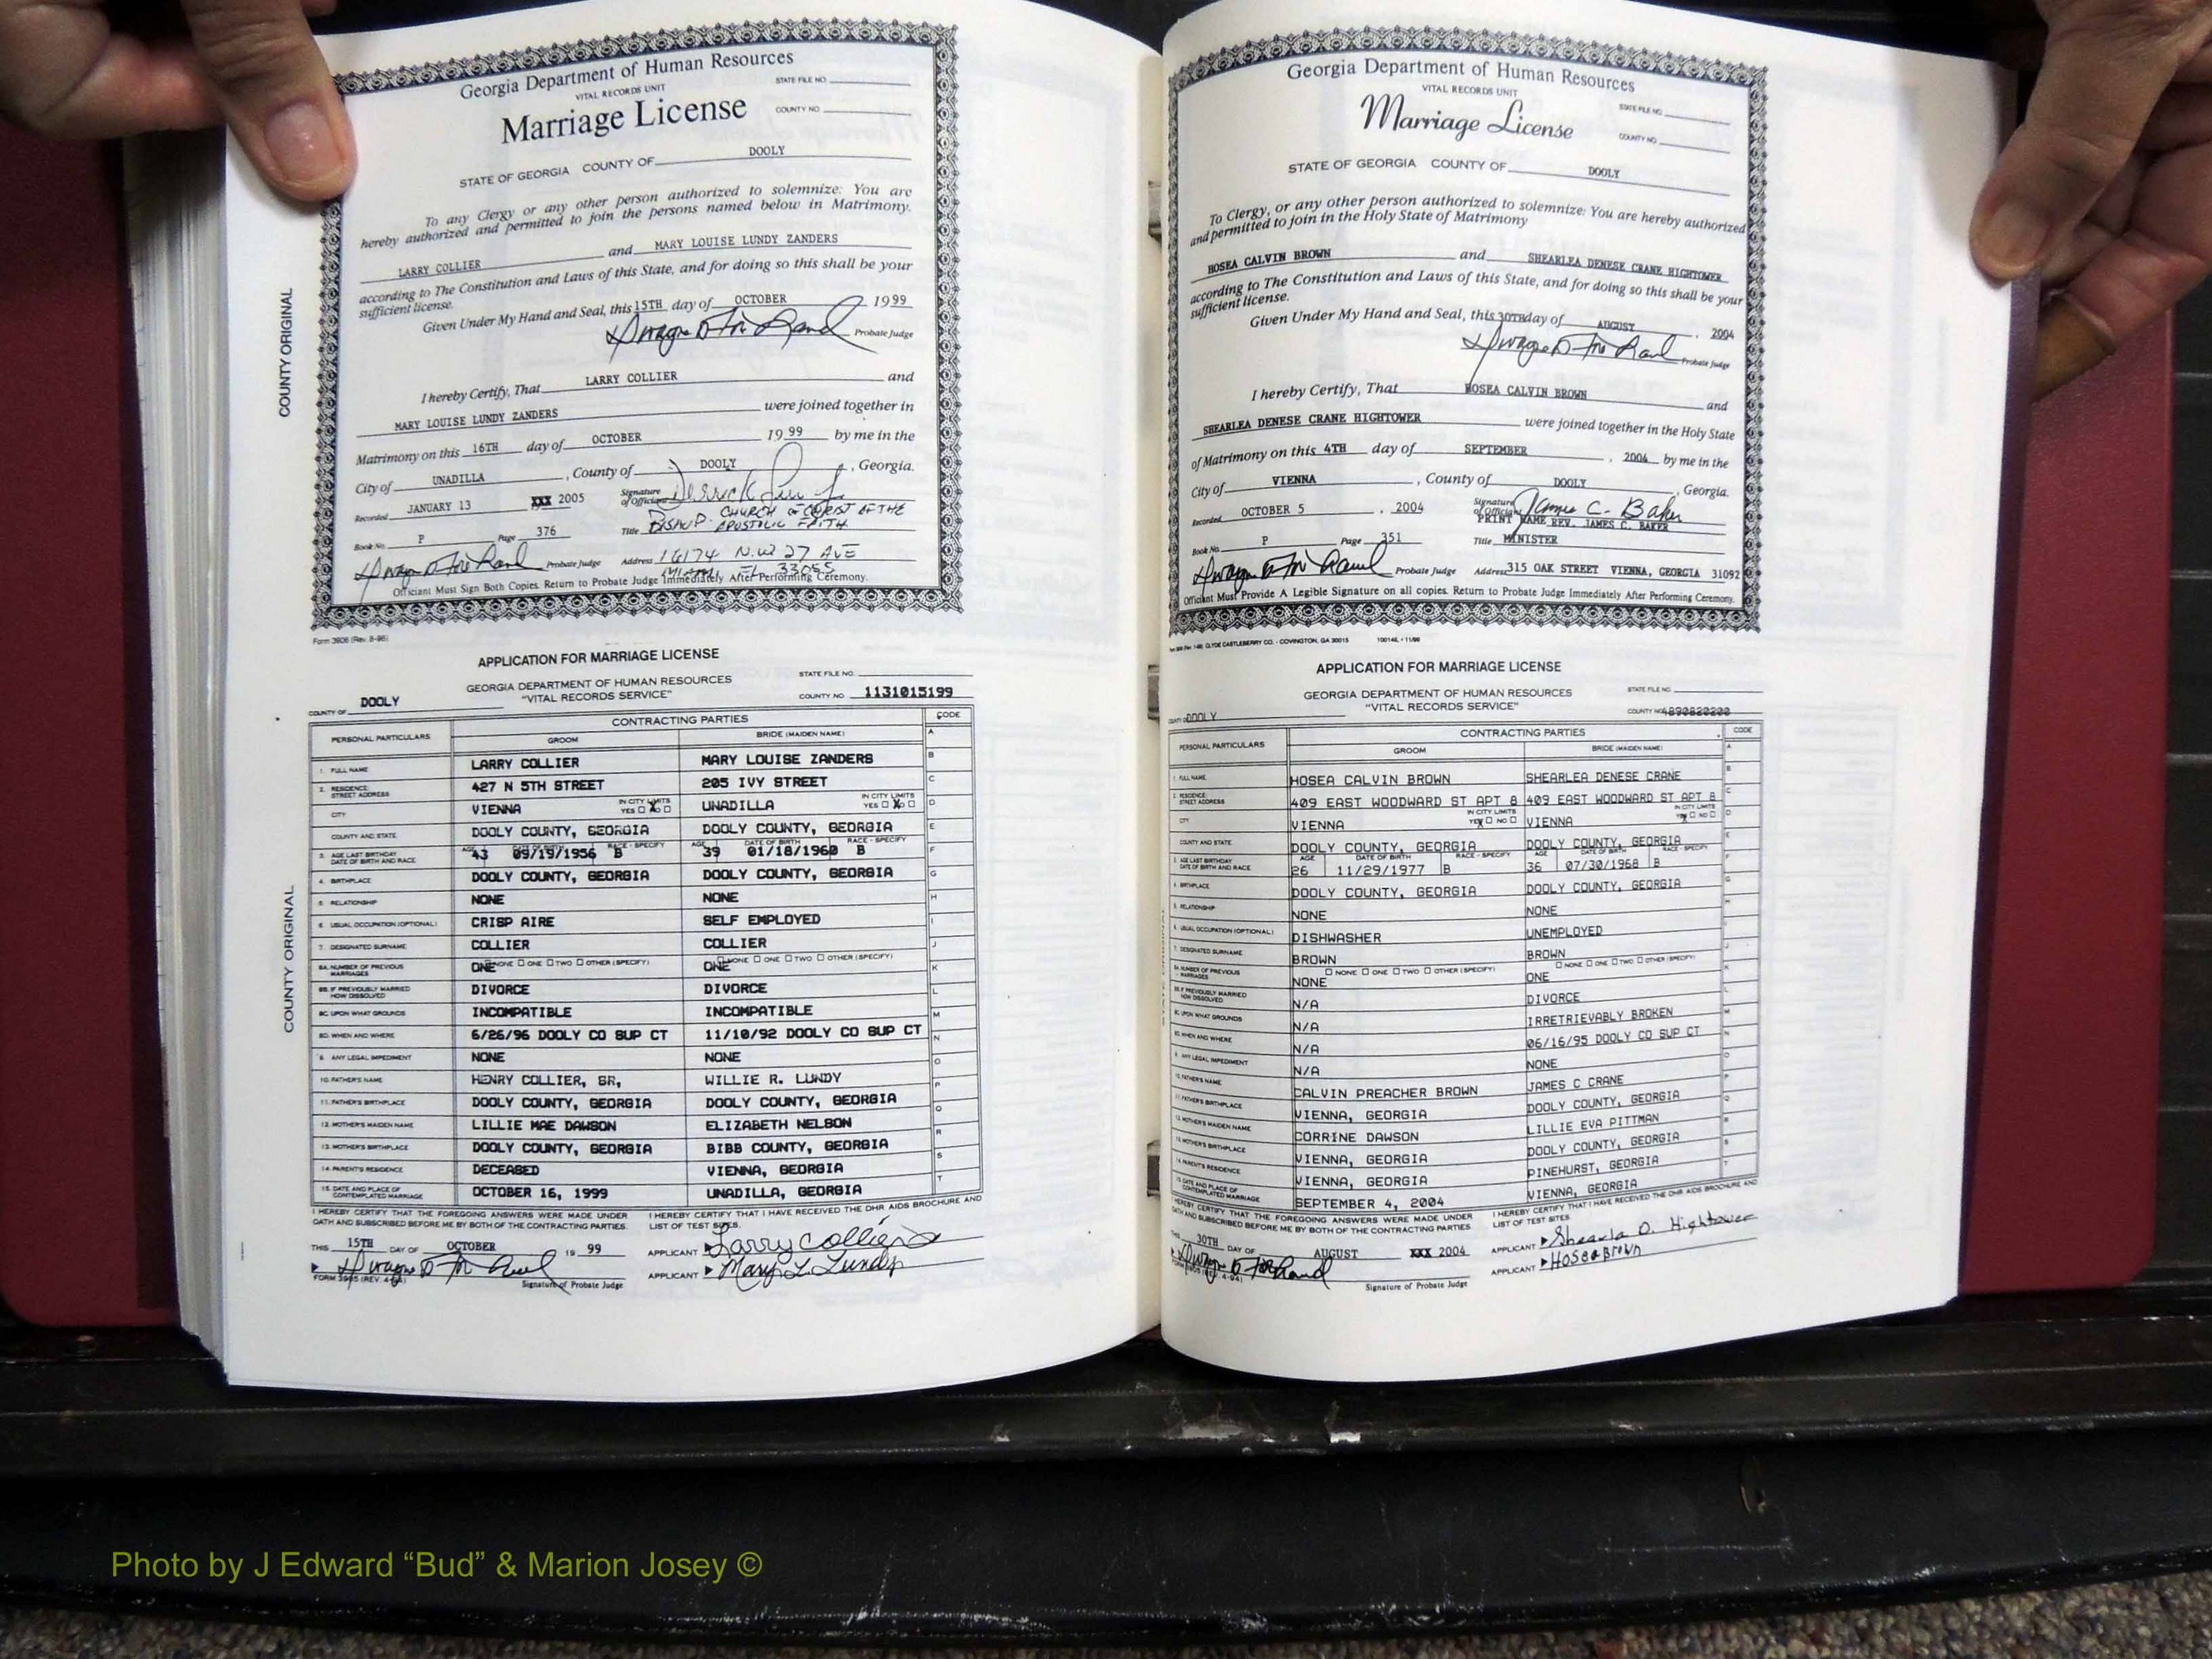 COUNTY ORIGINAL
Georgia Department of Human Resources
VITAL RECORDS UNIT
STATE FILE NO.
Marriage License
COUNTY NO.
STATE OF GEORGIA COUNTY OF DOOLY
To any Clergy or any other person authorized to solemnize: You are
hereby authorized and permitted to join the persons named below in Matrimony.
LARRY COLLIER and MARY LOUISE LUNDY ZANDERS
according to The Constitution and Laws of this State, and for doing so this shall be your
sufficient license.
Given Under My Hand and Seal, this 15TH day of OCTOBER 1999
Probate Judge
I hereby Certify, That LARRY COLLIER and
MARY LOUISE LUNDY ZANDERS were joined together in
Matrimony on this 16TH day of OCTOBER 1999 by me in the
City of UNADILLA, County of DOOLY, Georgia.
Recorded JANUARY 13 XXX 2005 Signature of Officiant Derrick
Book No. P Page 376 Title BISHOP CHURCH OF CHRIST OF THE
APOSTOLIC FAITH
Probate Judge Address 16174 N.W 27 AVE
MIAMI, FL 33055
Officiant Must Sign Both Copies. Return to Probate Judge Immediately After Performing Ceremony.
Form 3906 (Rev. 8-96)
APPLICATION FOR MARRIAGE LICENSE
GEORGIA DEPARTMENT OF HUMAN RESOURCES
"VITAL RECORDS SERVICE"
STATE FILE NO.
COUNTY OF DOOLY
COUNTY NO. 1131015199
COUNTY ORIGINAL
PERSONAL PARTICULARS CONTRACTING PARTIES CODE
GROOM BRIDE (MAIDEN NAME) A
1. FULL NAME LARRY COLLIER MARY LOUISE ZANDERS B
2. RESIDENCE: STREET ADDRESS 427 N 5TH STREET 205 IVY STREET C
CITY VIENNA IN CITY LIMITS YES NO UNADILLA IN CITY LIMITS YES NO D
COUNTY AND STATE DOOLY COUNTY, GEORGIA DOOLY COUNTY, GEORGIA E
3. AGE LAST BIRTHDAY DATE OF BIRTH AND RACE AGE 43 DATE OF BIRTH 09/19/1956 RACE - SPECIFY B AGE 39 DATE OF BIRTH 01/18/1960 RACE - SPECIFY B F
4. BIRTHPLACE DOOLY COUNTY, GEORGIA DOOLY COUNTY, GEORGIA G
5. RELATIONSHIP NONE NONE H
6. USUAL OCCUPATION (OPTIONAL) CRISP AIRE SELF EMPLOYED I
7. DESIGNATED SURNAME COLLIER COLLIER J
8A. NUMBER OF PREVIOUS MARRIAGES ONE NONE ONE TWO OTHER (SPECIFY) ONE NONE ONE TWO OTHER (SPECIFY) K
8B. IF PREVIOUSLY MARRIED HOW DISSOLVED DIVORCE DIVORCE L
8C. UPON WHAT GROUNDS INCOMPATIBLE INCOMPATIBLE M
8D. WHEN AND WHERE 6/26/96 DOOLY CO SUP CT 11/10/92 DOOLY CO SUP CT N
9. ANY LEGAL IMPEDIMENT NONE NONE O
10. FATHER'S NAME HENRY COLLIER, SR, WILLIE R. LUNDY P
11. FATHER'S BIRTHPLACE DOOLY COUNTY, GEORGIA DOOLY COUNTY, GEORGIA Q
12. MOTHER'S MAIDEN NAME LILLIE MAE DAWSON ELIZABETH NELSON R
13. MOTHER'S BIRTHPLACE DOOLY COUNTY, GEORGIA BIBB COUNTY, GEORGIA S
14. PARENT'S RESIDENCE DECEASED VIENNA, GEORGIA T
15. DATE AND PLACE OF CONTEMPLATED MARRIAGE OCTOBER 16, 1999 UNADILLA, GEORGIA
I HEREBY CERTIFY THAT THE FOREGOING ANSWERS WERE MADE UNDER
OATH AND SUBSCRIBED BEFORE ME BY BOTH OF THE CONTRACTING PARTIES.
I HEREBY CERTIFY THAT I HAVE RECEIVED THE DHR AIDS BROCHURE AND
LIST OF TEST SITES.
THIS 15TH DAY OF OCTOBER 19 99 APPLICANT Larry Collier
APPLICANT Mary L. Lundy
FORM 3905 (REV. 4-94) Signature of Probate Judge
Georgia Department of Human Resources
VITAL RECORDS UNIT
STATE FILE NO.
Marriage License
COUNTY NO.
STATE OF GEORGIA COUNTY OF DOOLY
To Clergy, or any other person authorized to solemnize: You are hereby authorized
and permitted to join in the Holy State of Matrimony
HOSEA CALVIN BROWN and SHEARLEA DENESE CRANE HIGHTOWER
according to The Constitution and Laws of this State, and for doing so this shall be your
sufficient license.
Given Under My Hand and Seal, this 30TH day of AUGUST, 2004
Probate Judge
I hereby Certify, That HOSEA CALVIN BROWN and
SHEARLEA DENESE CRANE HIGHTOWER were joined together in the Holy State
of Matrimony on this 4TH day of SEPTEMBER, 2004 by me in the
City of VIENNA, County of DOOLY, Georgia.
Recorded OCTOBER 5, 2004 Signature of Officiant James C. Baker
PRINT NAME REV. JAMES C. BAKER
Book No. P Page 351 Title MINISTER
Probate Judge Address 315 OAK STREET VIENNA, GEORGIA 31092
Officiant Must Provide A Legible Signature on all copies. Return to Probate Judge Immediately After Performing Ceremony.
CLYDE CASTLEBERRY CO. - COVINGTON, GA 30015
APPLICATION FOR MARRIAGE LICENSE
GEORGIA DEPARTMENT OF HUMAN RESOURCES
"VITAL RECORDS SERVICE"
STATE FILE NO.
DOOLY
COUNTY NO. 4890820200
PERSONAL PARTICULARS CONTRACTING PARTIES CODE
GROOM BRIDE (MAIDEN NAME) A
1. FULL NAME HOSEA CALVIN BROWN SHEARLEA DENESE CRANE B
2. RESIDENCE: STREET ADDRESS 409 EAST WOODWARD ST APT 8 409 EAST WOODWARD ST APT 8 C
CITY VIENNA IN CITY LIMITS YES NO VIENNA IN CITY LIMITS YES NO D
COUNTY AND STATE DOOLY COUNTY, GEORGIA DOOLY COUNTY, GEORGIA E
3. AGE LAST BIRTHDAY DATE OF BIRTH AND RACE AGE 26 DATE OF BIRTH 11/29/1977 RACE - SPECIFY B AGE 36 DATE OF BIRTH 07/30/1968 RACE - SPECIFY B F
4. BIRTHPLACE DOOLY COUNTY, GEORGIA DOOLY COUNTY, GEORGIA G
5. RELATIONSHIP NONE NONE H
6. USUAL OCCUPATION (OPTIONAL) DISHWASHER UNEMPLOYED I
7. DESIGNATED SURNAME BROWN BROWN J
8A. NUMBER OF PREVIOUS MARRIAGES NONE NONE ONE TWO OTHER (SPECIFY) ONE NONE ONE TWO OTHER (SPECIFY) K
8B. IF PREVIOUSLY MARRIED HOW DISSOLVED N/A DIVORCE L
8C. UPON WHAT GROUNDS N/A IRRETRIEVABLY BROKEN M
8D. WHEN AND WHERE N/A 06/16/95 DOOLY CO SUP CT N
9. ANY LEGAL IMPEDIMENT N/A NONE O
10. FATHER'S NAME CALVIN PREACHER BROWN JAMES C CRANE P
11. FATHER'S BIRTHPLACE VIENNA, GEORGIA DOOLY COUNTY, GEORGIA Q
12. MOTHER'S MAIDEN NAME CORRINE DAWSON LILLIE EVA PITTMAN R
13. MOTHER'S BIRTHPLACE VIENNA, GEORGIA DOOLY COUNTY, GEORGIA S
14. PARENT'S RESIDENCE VIENNA, GEORGIA PINEHURST, GEORGIA T
15. DATE AND PLACE OF CONTEMPLATED MARRIAGE SEPTEMBER 4, 2004 VIENNA, GEORGIA
I HEREBY CERTIFY THAT THE FOREGOING ANSWERS WERE MADE UNDER
OATH AND SUBSCRIBED BEFORE ME BY BOTH OF THE CONTRACTING PARTIES
I HEREBY CERTIFY THAT I HAVE RECEIVED THE DHR AIDS BROCHURE AND
LIST OF TEST SITES.
THIS 30TH DAY OF AUGUST XXX 2004 APPLICANT Shearla D. Hightower
APPLICANT Hosea Brown
Signature of Probate Judge
Photo by J Edward “Bud” & Marion Josey ©